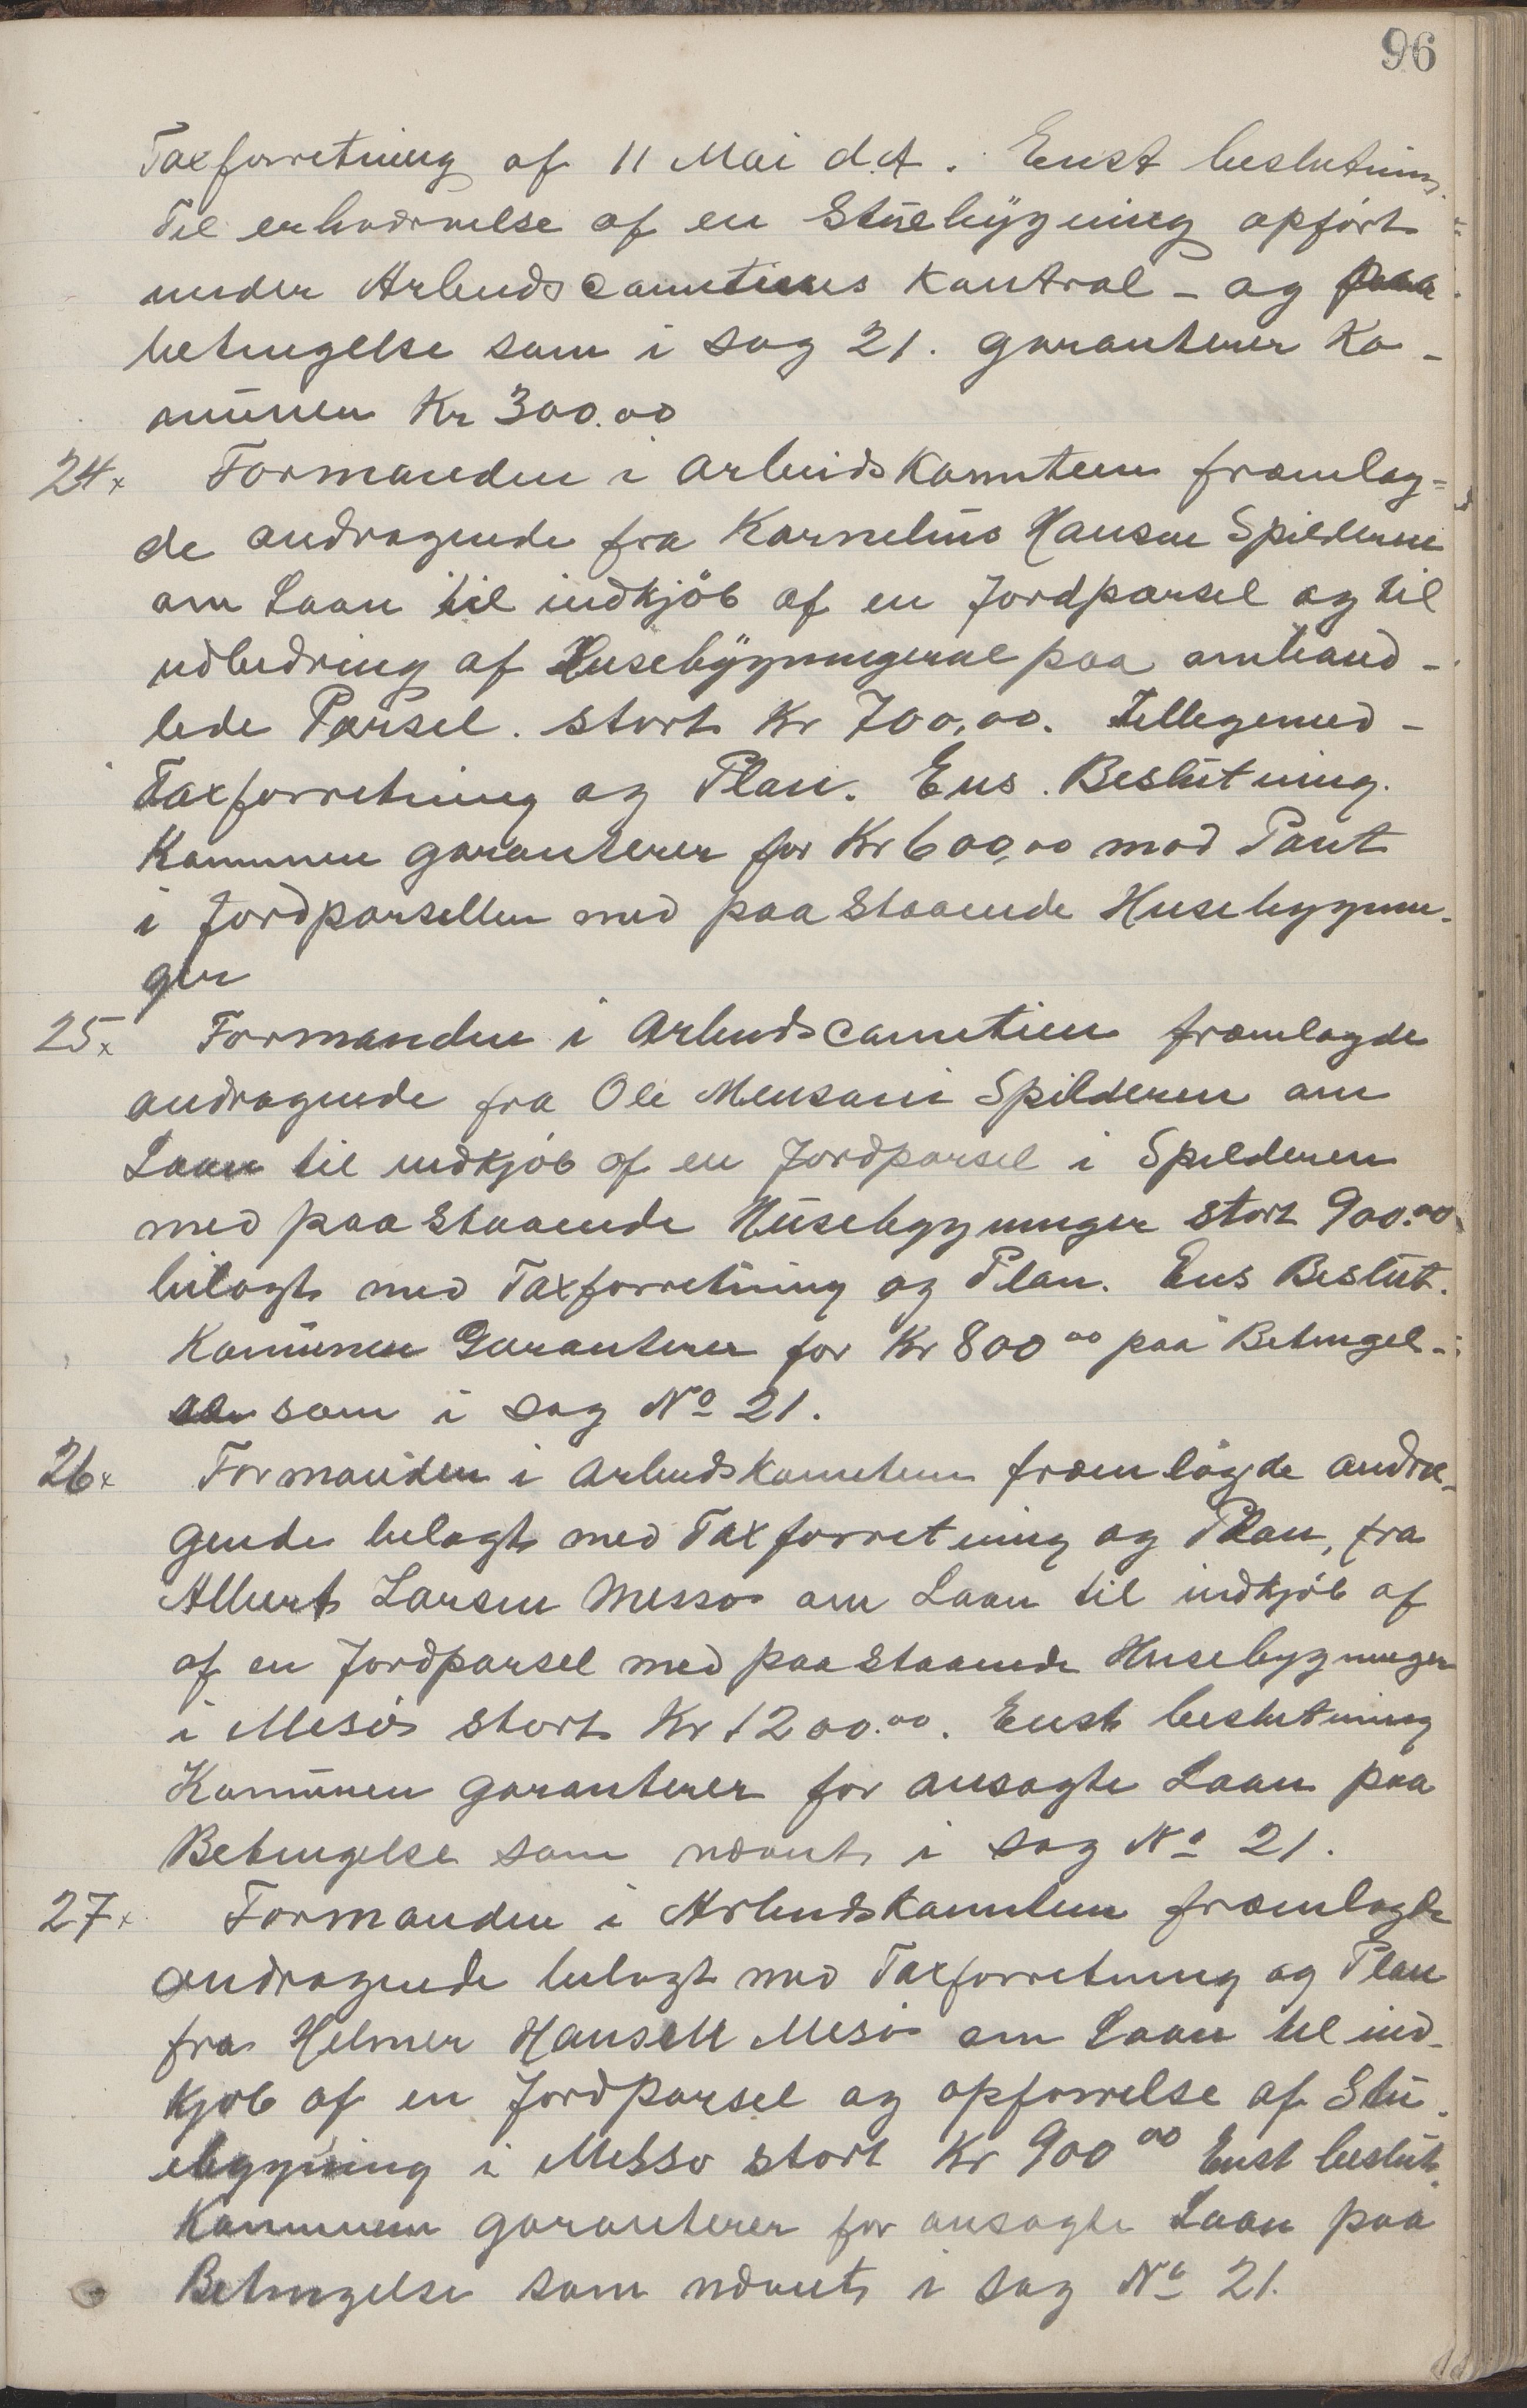 96
Taxforretning af 11 Mai d.A. Enst beslutning.
Til erhværvelse af en Stuebygning opført
under Arbeidscomitiens Kontrol - og paa
betingelse som i sag 21. garanterer Ko-
munen Kr 300.00
24x Formanden i Arbeidskomiteen fræmlag-
de andragende fra Kornelius Hansen Spilderen
om Laan til indkjöb af en Jordparsel og til
udbedring af Husebygningerne paa omhand-
lede Parsel. stort Kr 700,00. Tillegemed
Taxforretning og Plan. Ens. Beslutning.
Kommunen garanterer for Kr 600,00 mod Pant
i Jordparsellen med paastaaende Husebygnin-
ger
25x Formanden i Arbeidscomitien fræmlagde
andragende fra Ole Mensani Spilderen om
Laan til indkjöb af en Jordparsel i Spilderen
med paastaaende Husebygninger stort 900.00
bilagt med Taxforretning og Plan. Ens Beslut.
Komunen Garanterer for Kr 800 00 paa Betingel-
se som i sag No 21.
26x Formanden i Arbeidskomiteen fræmlagde andra-
gende belagt med Taxforretning og Plan, fra
Albert Larsen Messø om Laan til indkjöb af
af en Jordparsel med paastaaende Husebygninger
i Mesø stort Kr 1200.00. Enst beslutning
Komunen garanterer for ansøgte Laan paa
Betingelse som nævnt i sag No 21.
27x Formanden i Arbeidskomiteen fræmlagde
andragende belagt med Taxforretning og Plan
fra Helmer Hansen Mesø om Laan til ind-
kjøb af en Jordparsel og opførelse af Stu-
ebygning i Messø stort Kr 900 00 Enst beslut.
Kommunen garanterer for ansøgte Laan paa
Betingelse som nævnt i sag No 21.